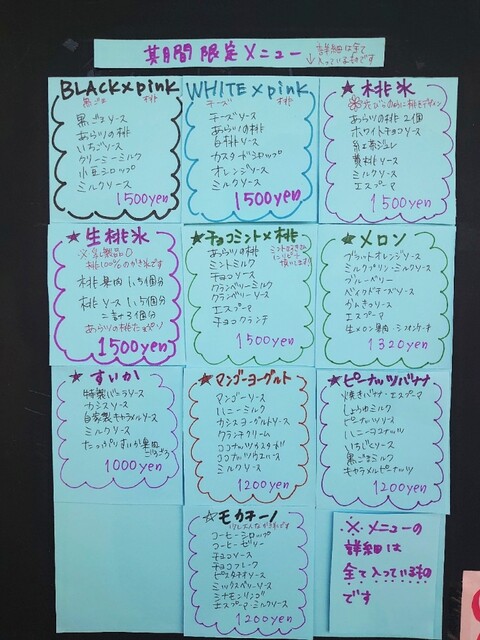 期間限定メニュー
詳細は全て
↓入っているものです
BLACK×pink
黒ごま 桃
黒ごまソース
あらヅリの桃
いちごソース
クリーミーミルク
小豆シロップ
ミルクソース
1500yen
WHITE×pink
チーズ 桃
チーズソース
あらヅリの桃
白桃ソース
カスタードシロップ
オレンジソース
ミルクソース
1500yen
★桃氷
あらヅリの桃 2個
ホワイトチョコソース
紅茶ジュレ
黄桃ソース
ミルクソース
エスプーマ
1500yen
★生桃氷
※乳製品0
桃100%のかき氷です
桃果肉 1.5個分
桃ソース 1.5個分
二計3個分
あらヅリの桃たっぷり
1500yen
★チョコミント×桃
あらヅリの桃
ミントミルク
チョコソース
クランベリーミルク
クランベリーソース
エスプーマ
チョコクランチ
1500yen
★メロン
ブラッドオレンジソース
ミルクプリン・ミルクソース
ブルーベリー
ベイクドチーズソース
エスプーマ
1320yen
★すいか
特製バニラソース
カシスソース
自家製キャラメルソース
ミルクソース
たっぷりすいか果肉
1000yen
★マンゴーヨーグルト
マンゴーソース
ハニーミルク
カシスヨーグルトソース
クランチクリーム
ココナッツカスタード
ミルクソース
1200yen
★ピーナッツバナナ
焼きバナナ・エスプーマ
しょうゆミルク
ピーナッツソース
ハニーココナッツ
いちじくソース
黒ごまミルク
キャラメルピーナッツ
1200yen
☆モカネーノ
少し大人なかき氷です
コーヒーシロップ
コーヒーゼリー
チョコソース
チョコフレーク
ピスタチオソース
ミックスベリーソース
シナモンリンゴ
エスプーマ・ミルクソース
1200yen
※メニューの
詳細は
全て入っているもの
です